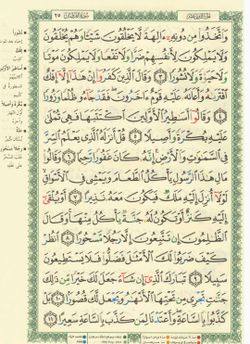 وَاتَّخَذُوا مِن دُونِهِ آلِهَةً لَّا يَخْلُقُونَ شَيْئًا وَهُمْ يُخْلَقُونَ
وَلَا يَمْلِكُونَ لِأَنفُسِهِمْ ضَرًّا وَلَا نَفْعًا وَلَا يَمْلِكُونَ مَوْتًا
وَلَا حَيَاةً وَلَا نُشُورًا ٣ وَقَالَ الَّذِينَ كَفَرُوا إِنْ هَٰذَا إِلَّا إِفْكٌ
افْتَرَاهُ وَأَعَانَهُ عَلَيْهِ قَوْمٌ آخَرُونَ فَقَدْ جَاءُو ظُلْمًا وَزُورًا
٤ وَقَالُوا أَسَاطِيرُ الْأَوَّلِينَ اكْتَتَبَهَا فَهِيَ تُمْلَىٰ
عَلَيْهِ بُكْرَةً وَأَصِيلًا ٥ قُلْ أَنزَلَهُ الَّذِي يَعْلَمُ السِّرَّ
فِي السَّمَاوَاتِ وَالْأَرْضِ إِنَّهُ كَانَ غَفُورًا رَّحِيمًا ٦ وَقَالُوا
مَالِ هَٰذَا الرَّسُولِ يَأْكُلُ الطَّعَامَ وَيَمْشِي فِي الْأَسْوَاقِ
لَوْلَا أُنزِلَ إِلَيْهِ مَلَكٌ فَيَكُونَ مَعَهُ نَذِيرًا ٧ أَوْ يُلْقَىٰ
إِلَيْهِ كَنزٌ أَوْ تَكُونُ لَهُ جَنَّةٌ يَأْكُلُ مِنْهَا وَقَالَ
الظَّالِمُونَ إِن تَتَّبِعُونَ إِلَّا رَجُلًا مَّسْحُورًا ٨ انظُرْ
كَيْفَ ضَرَبُوا لَكَ الْأَمْثَالَ فَضَلُّوا فَلَا يَسْتَطِيعُونَ
سَبِيلًا ٩ تَبَارَكَ الَّذِي إِن شَاءَ جَعَلَ لَكَ خَيْرًا مِّن ذَٰلِكَ
جَنَّاتٍ تَجْرِي مِن تَحْتِهَا الْأَنْهَارُ وَيَجْعَل لَّكَ قُصُورًا ١٠ بَلْ
كَذَّبُوا بِالسَّاعَةِ وَأَعْتَدْنَا لِمَن كَذَّبَ بِالسَّاعَةِ سَعِيرًا ١١